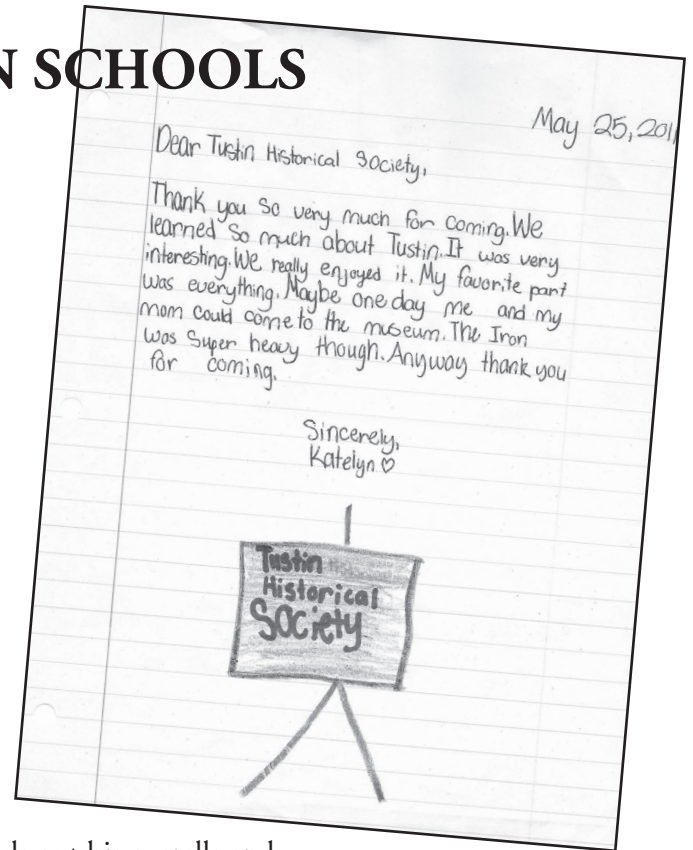 N SCHOOLS
May 25, 201
Dear Tustin Historical Society,
Thank you So very much for coming. We
learned So much about Tustin. It was very
interesting. We really enjoyed it. My favorite part
was everything. Maybe one day me and my
mom could come to the museum. The Iron
was Super heavy though. Anyway thank you
for coming.
Sincerely,
Katelyn ♡
Tustin
Historical
Society